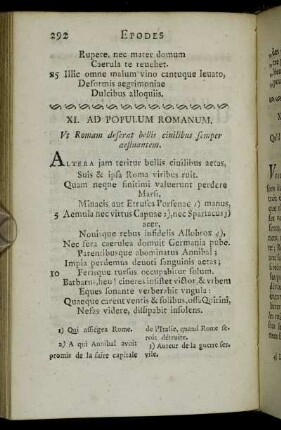 292 EPODES
Rupere, nec mater domum
Caerula te reuehet.
85 Illic omne malum vino cantuque leuato,
Deformis aegrimoniae
Dulcibus alloquiis.
XI. AD POPULUM ROMANUM,
Vt Romam deserat bellis ciuilibus semper
aestuantem.
ALTERA jam teritur bellis ciuilibus aetas,
Suis & ipsa Roma viribus ruit.
Quam neque finitimi valuerunt perdere
Marsi,
Minacis aut Etrusca Porsenae 1) manus,
5 Aemula nec virtus Capuae 2), nec Spartacus 3)
acer,
Nouisque rebus infidelis Allobrox 4),
Nec fera caerulea domuit Germania pube.
Parentibusque abominatus Annibal;
Impia perdemus deuoti sanguinis aetas;
10 Ferisque rursus occupabitur solum.
Barbarus, heu! cineres insistet victor, & vrbem
Eques sonante verberabit vngula:
Quaeque carent ventis & solibus, ossa Quirini,
Nefas videre, dissipabit insolens.
1) Qui assiégea Rome.
2) A qui Annibal avoit
promis de la faire capitale
de l'Italie, quand Rome se-
roit détruite.
3) Auteur de la guerre ser-
vile.